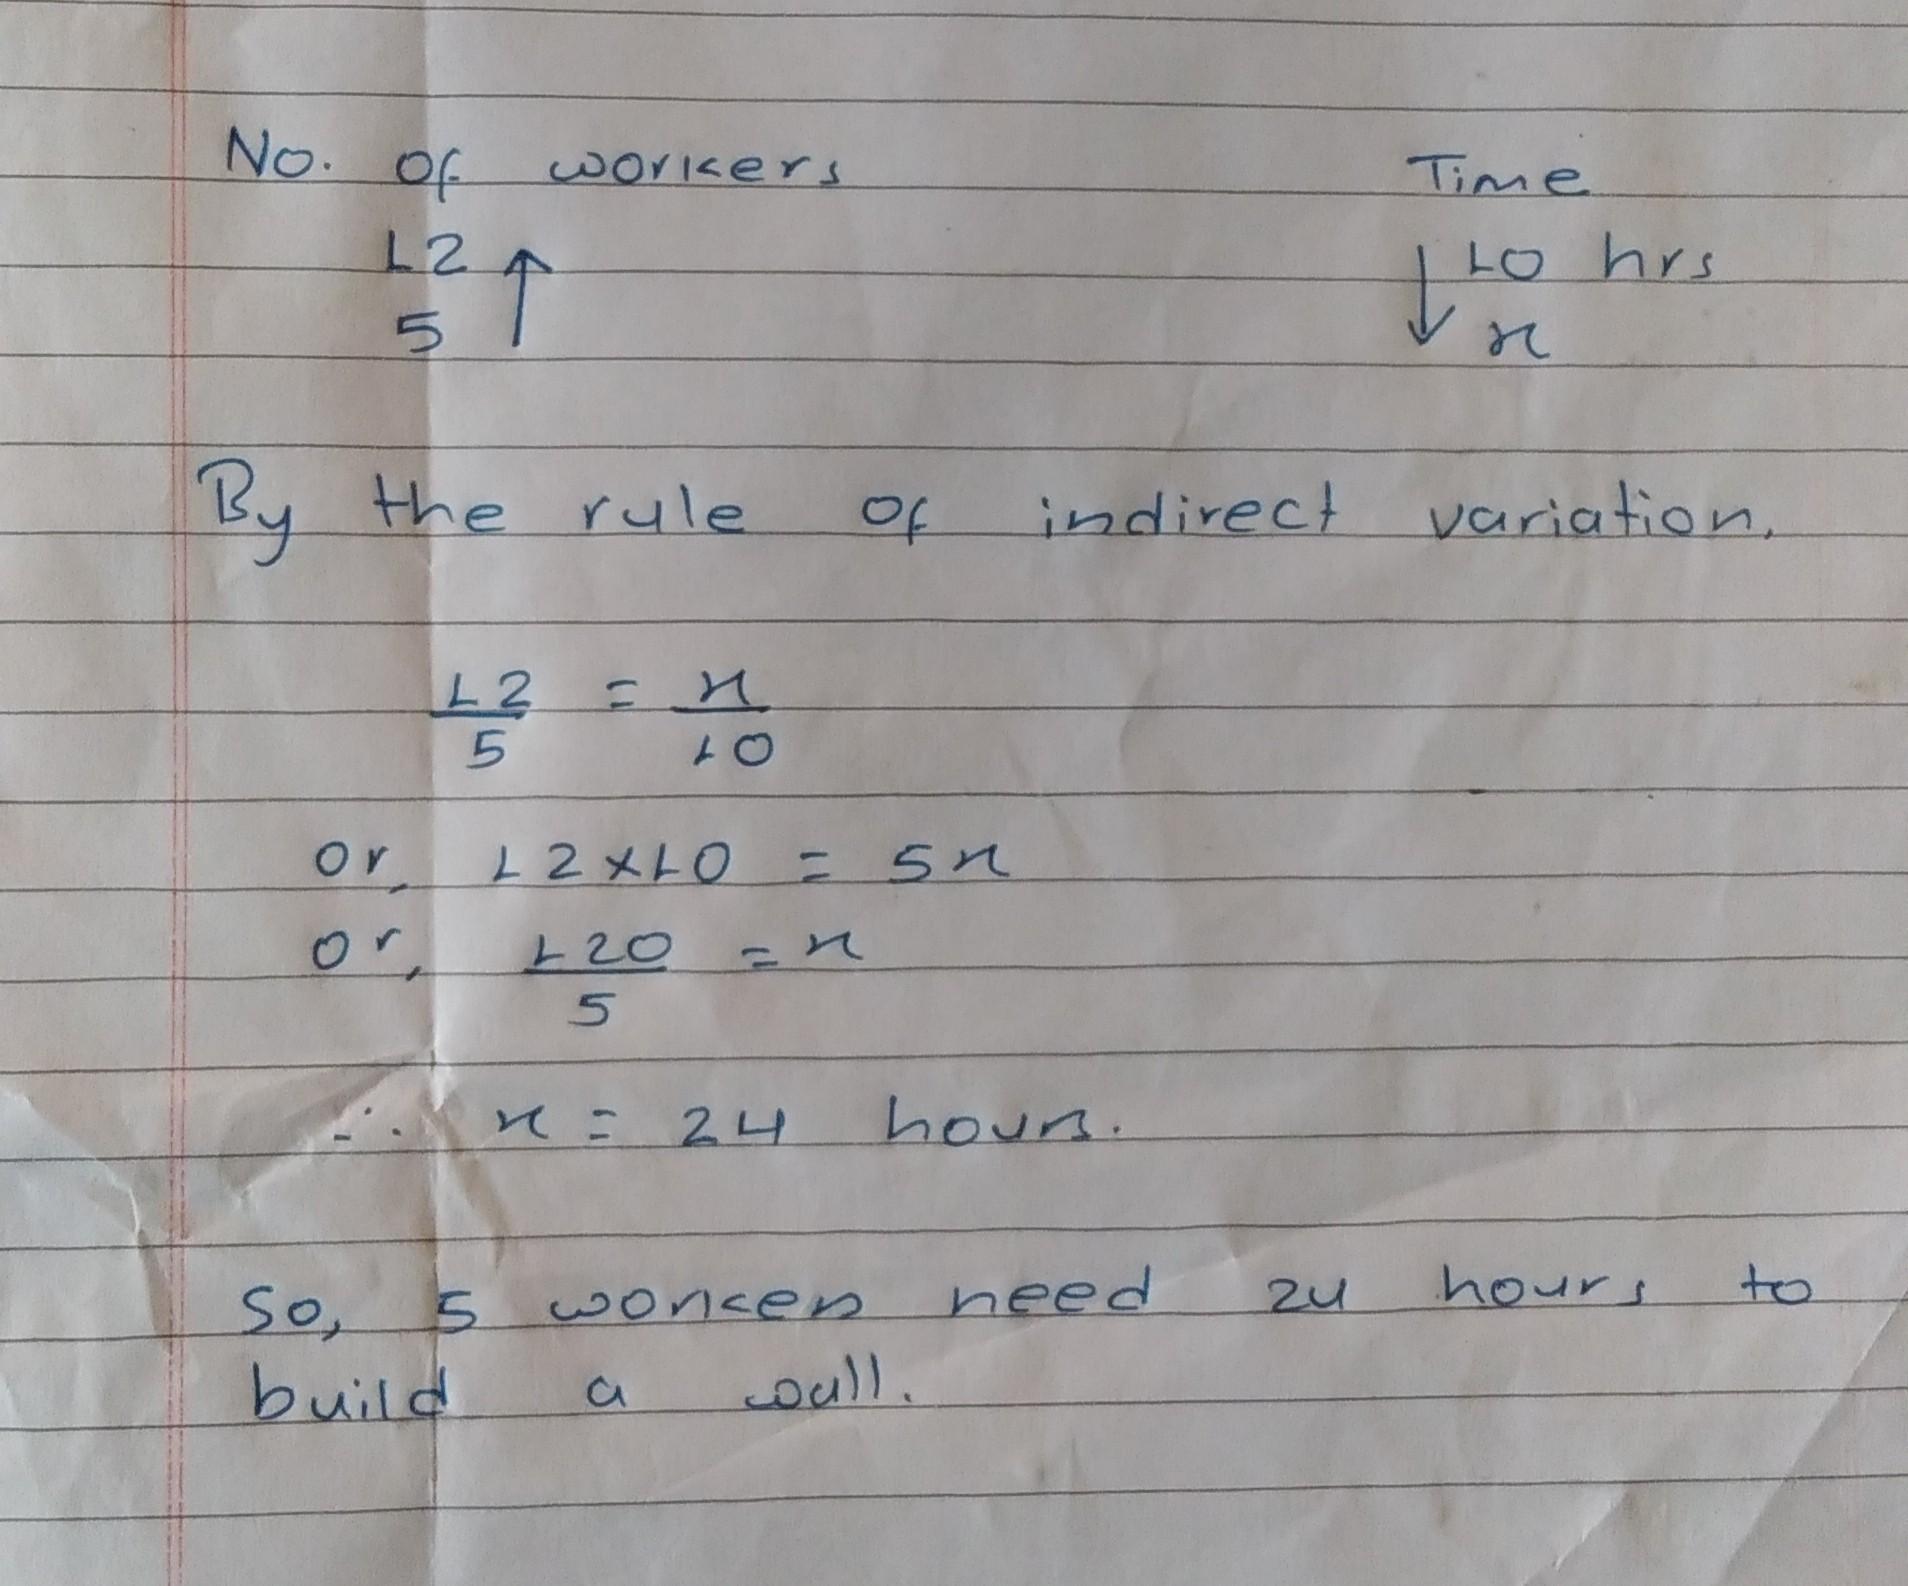 No. of workers Time
12 ↑ ↓ 10 hrs
5 x
By the rule of indirect variation,
12/5 = x/10
or, 12×10 = 5x
or, 120/5 = x
∴ x = 24 hours.
So, 5 workers need 24 hours to
build a wall.